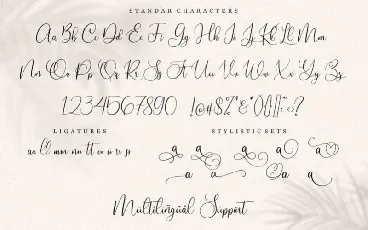 STANDAR CHARACTERS
Aa Bb Cc Dd Ee Ff Gg Hh Ii Jj Kk Ll Mm
Nn Oo Pp Qq Rr Ss Tt Uu Vv Ww Xx Yy Zz
1234567890 !@#$%^&*(){}[]:;<>?
LIGATURES
STYLISTIC SETS
aa ll mm nn tt
a a a a a
a a a a
Multilingual Support